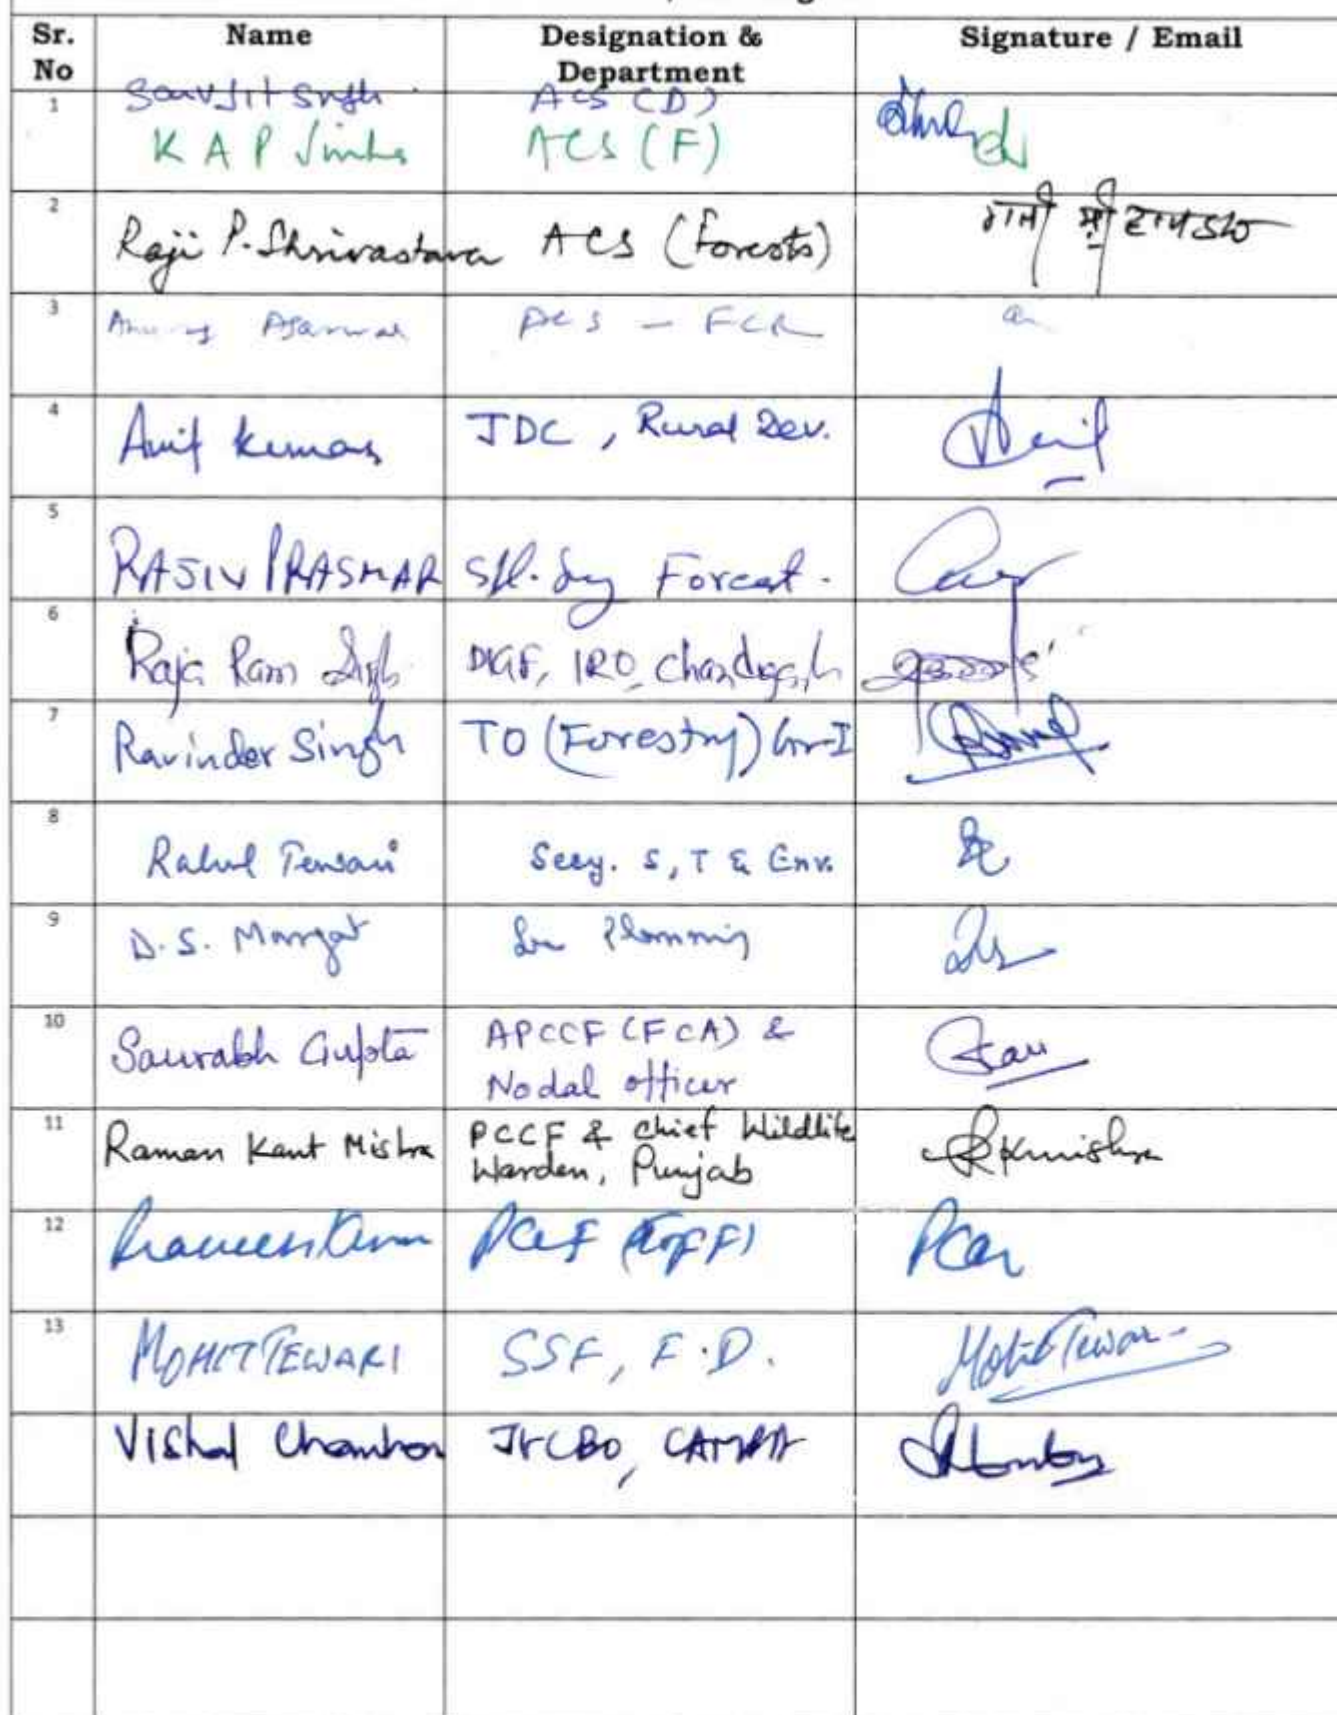 Sr. No Name Designation & Department Signature / Email
1 Sarvjit Singh ACS (D)
K A P Sinha ACS (F)
2 Raji P. Shrivastava ACS (Forests) राजी पी
3 Agarwal - FCR
4 Amit Kumar JDC, Rural Dev.
5 RAJIV PRASHAR Spl. Secy Forest.
6 Raja Ram Singh DIGF, IRO, Chandigarh
7 Ravinder Singh TO (Forestry) Gr-I
8 Rahul Tewari Secy. S, T & Env.
9 D.S. Mangat Planning
10 Saurabh Gupta APCCF (FCA) &
Nodal officer
11 Raman Kant Mishra PCCF & Chief Wildlife
Warden, Punjab RKmishra
12 PCCF (HoFF)
13 MOHIT TEWARI SSF, F.D. Mohit Tewari
Vishal Chauhan CAMPA